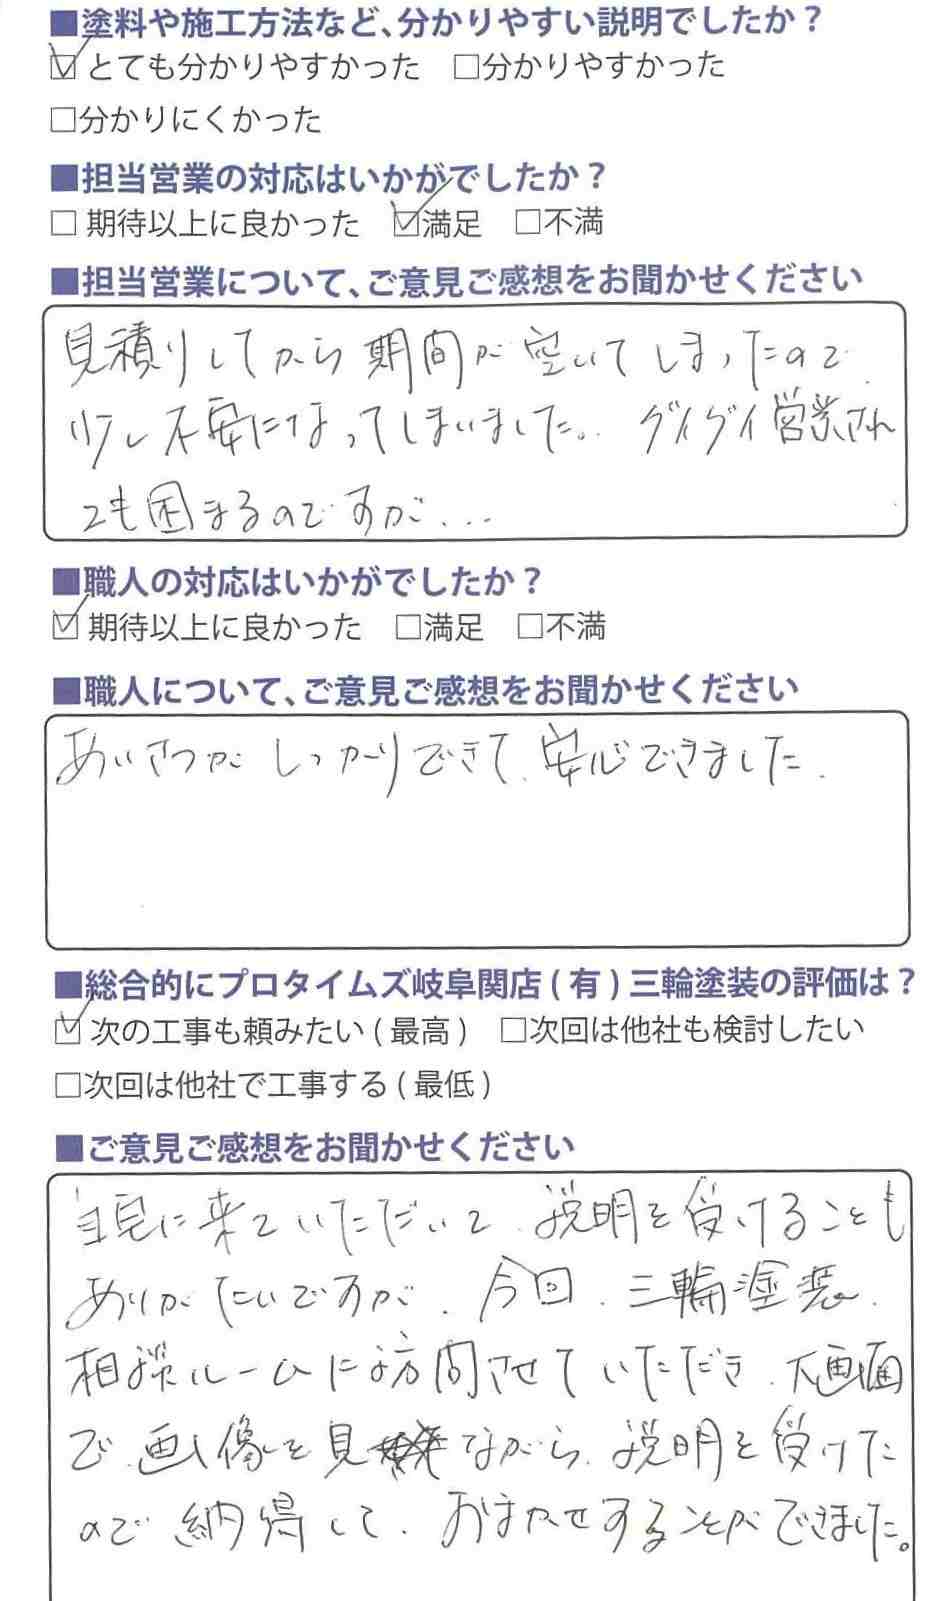 ■塗料や施工方法など、分かりやすい説明でしたか？
☑とても分かりやすかった □分かりやすかった
□分かりにくかった
■担当営業の対応はいかがでしたか？
□ 期待以上に良かった ☑満足 □不満
■担当営業について、ご意見ご感想をお聞かせください
見積りしてから期間が空いてしまったので
少し不安になってしまいました。グイグイ営業され
ても困まるのですが...
■職人の対応はいかがでしたか？
☑期待以上に良かった □満足 □不満
■職人について、ご意見ご感想をお聞かせください
あいさつがしっかりできて、安心できました.
■総合的にプロタイムズ岐阜関店(有)三輪塗装の評価は？
☑次の工事も頼みたい(最高) □次回は他社も検討したい
□次回は他社で工事する(最低)
■ご意見ご感想をお聞かせください
自宅に来ていただいて、説明を受けることも
ありがたいですが、今回、三輪塗装、
相談ルームに訪問させていただき、大画面
で、画像を見ながら、説明を受けた
ので納得して、おまかせすることができました。